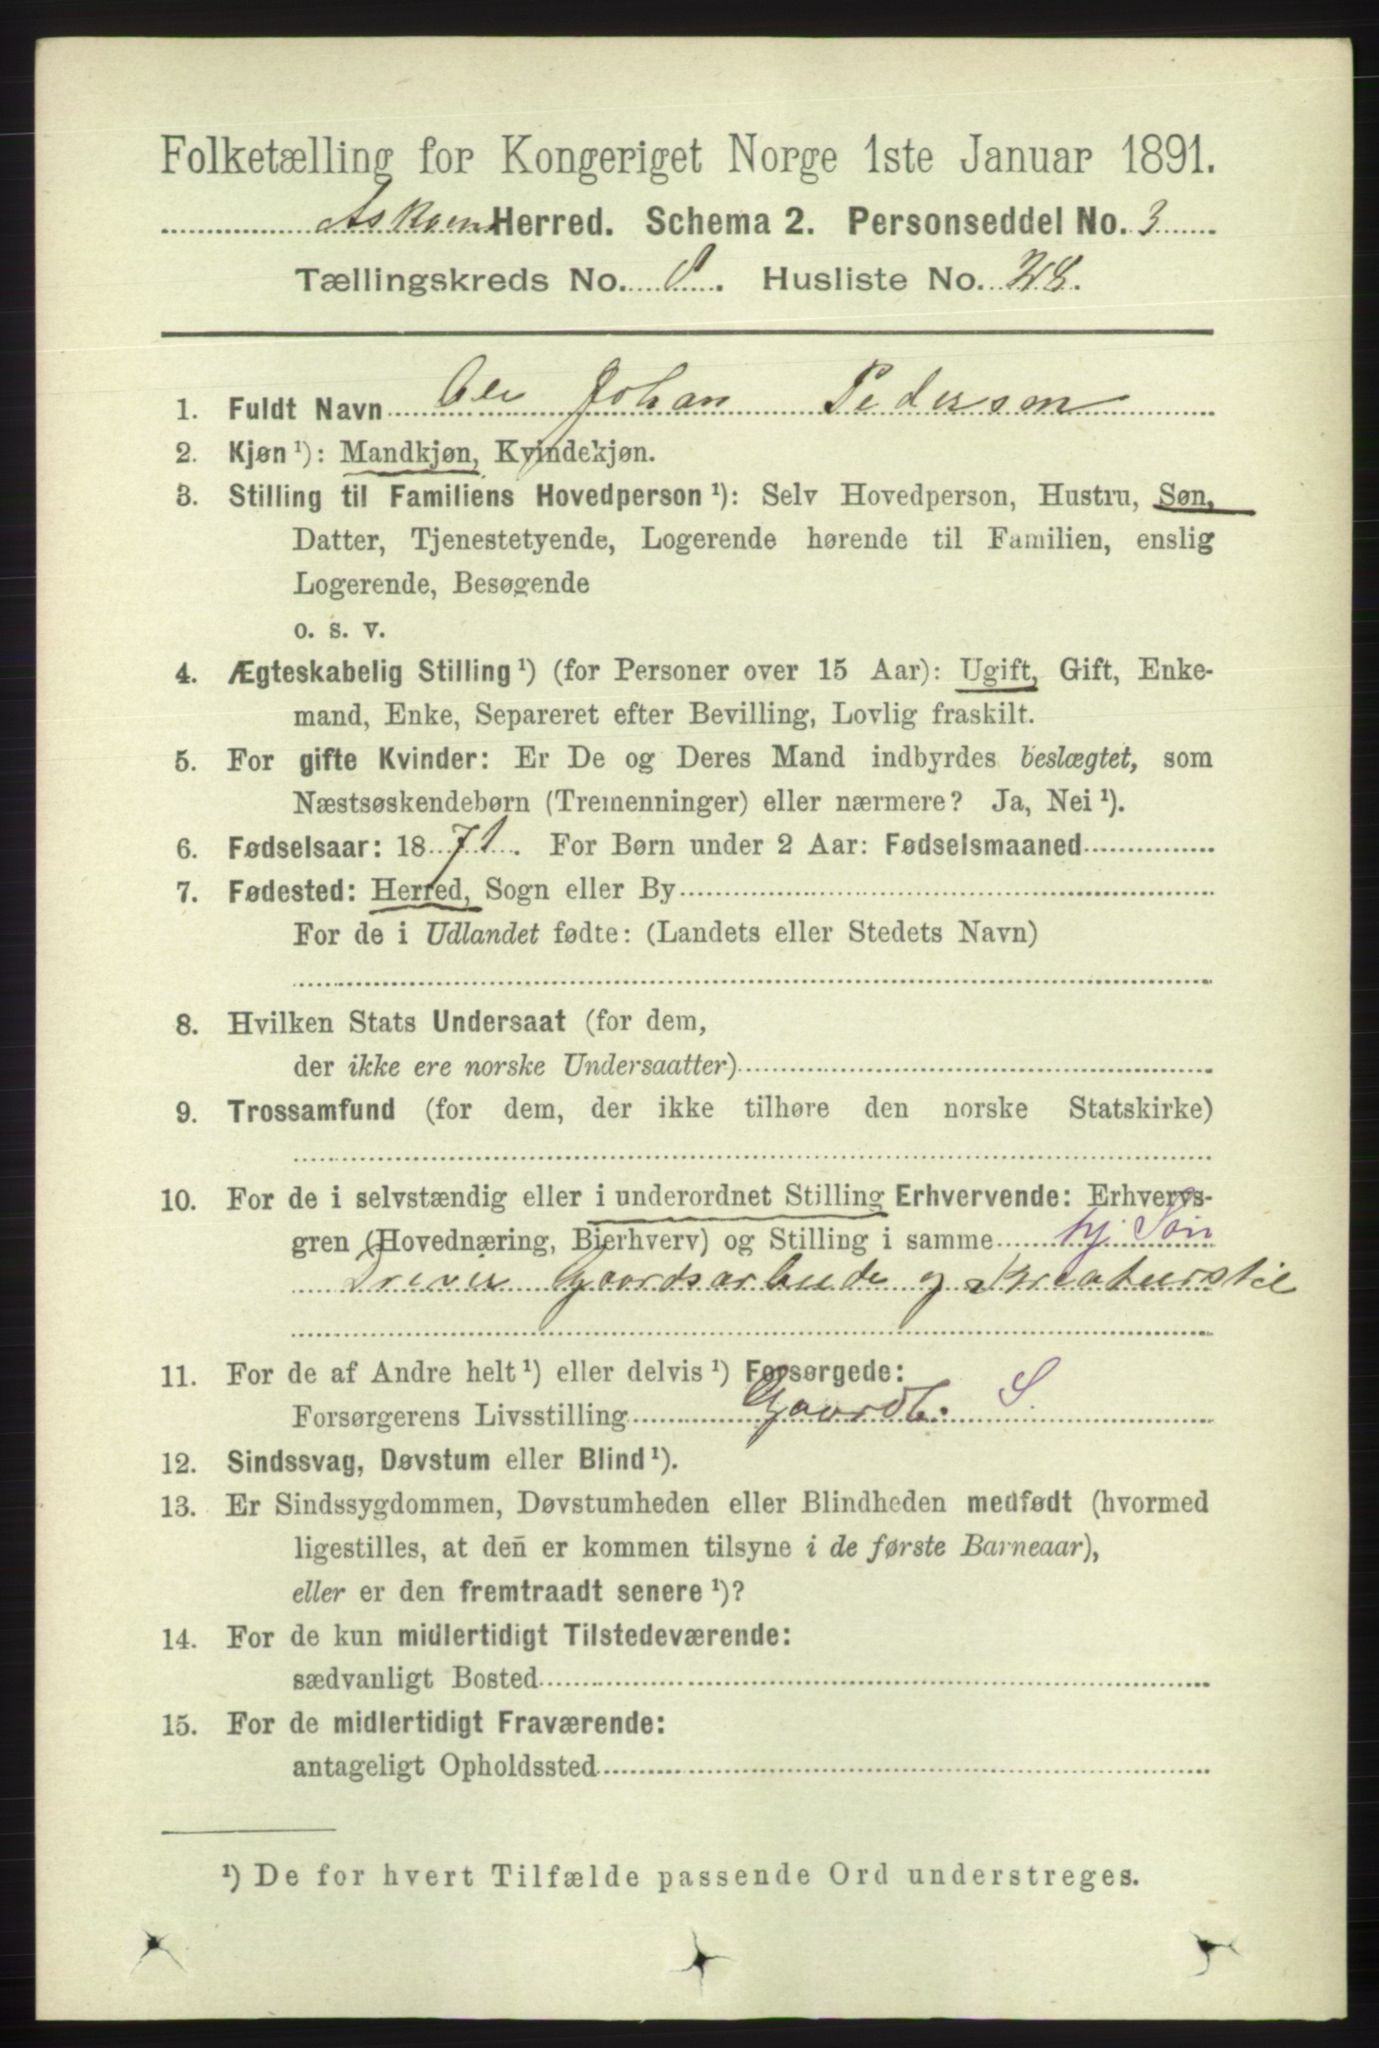 Folketælling for Kongeriget Norge 1ste Januar 1891.
Herred. Schema 2. Personseddel No. 3
Tællingskreds No. 8. Husliste No.
1. Fuldt Navn Ole Johan Pedersen
2. Kjøn ¹): Mandkjøn, Kvindekjøn.
3. Stilling til Familiens Hovedperson ¹): Selv Hovedperson, Hustru, Søn,
Datter, Tjenestetyende, Logerende hørende til Familien, enslig
Logerende, Besøgende
o. s. v.
4. Ægteskabelig Stilling ¹) (for Personer over 15 Aar): Ugift, Gift, Enke-
mand, Enke, Separeret efter Bevilling, Lovlig fraskilt.
5. For gifte Kvinder: Er De og Deres Mand indbyrdes beslægtet, som
Næstsøskendebørn (Tremenninger) eller nærmere? Ja, Nei ¹).
6. Fødselsaar: 1871. For Børn under 2 Aar: Fødselsmaaned
7. Fødested: Herred, Sogn eller By
For de i Udlandet fødte: (Landets eller Stedets Navn)
8. Hvilken Stats Undersaat (for dem,
der ikke ere norske Undersaatter)
9. Trossamfund (for dem, der ikke tilhøre den norske Statskirke)
10. For de i selvstændig eller i underordnet Stilling Erhvervende: Erhvervs-
gren (Hovednæring, Bierhverv) og Stilling i samme hj. Søn
Driver Gaardsarbeide og Kreaturstel
11. For de af Andre helt ¹) eller delvis ¹) Forsørgede:
Forsørgerens Livsstilling Gaardb. S.
12. Sindssvag, Døvstum eller Blind ¹).
13. Er Sindssygdommen, Døvstumheden eller Blindheden medfødt (hvormed
ligestilles, at den er kommen tilsyne i de første Barneaar),
eller er den fremtraadt senere ¹)?
14. For de kun midlertidigt Tilstedeværende:
sædvanligt Bosted
15. For de midlertidigt Fraværende:
antageligt Opholdssted
¹) De for hvert Tilfælde passende Ord understreges.